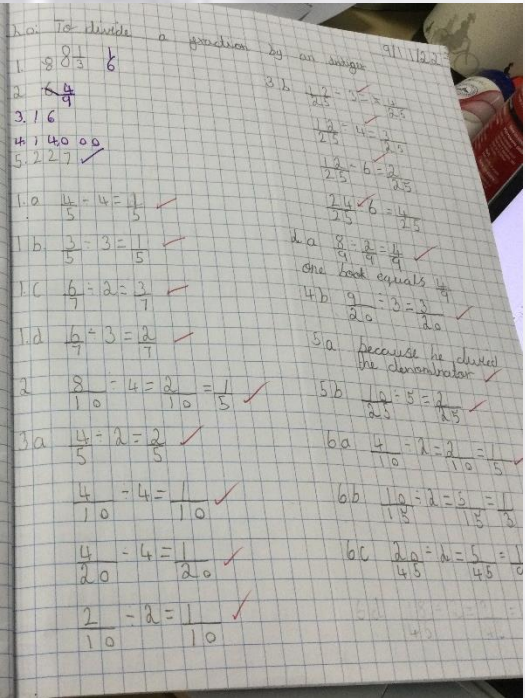 L.O: To divide a fraction by an integer
9/11/22
1. 8 8 1/3 1/6
2. 6 4/9
3. 16
4. 14000
5. 227
1.a 4/5 ÷ 4 = 1/5
1b. 3/5 ÷ 3 = 1/5
1.c 6/7 ÷ 2 = 3/7
1.d 6/7 ÷ 3 = 2/7
2 8/10 ÷ 4 = 2/10 = 1/5
3a 4/5 ÷ 2 = 2/5
4/10 ÷ 4 = 1/10
4/20 ÷ 4 = 1/20
2/10 ÷ 2 = 1/10
3.b
12/25 ÷ 4 = 3/25
12/25 ÷ 6 = 2/25
24/25 6 = 4/25
8/9 ÷ 2/9 = 4/9
one book equals 4/9
4.b 9/20 ÷ 3 = 3/20
5.a because he divided
the denominator
5b 10/25 ÷ 5 = 2/25
6a 4/10 ÷ 2 = 2/10 = 1/5
6b 10/15 ÷ 2 = 5/15 = 1/3
6c 20/45 ÷ 2 = 5/45 = 1/9
6d